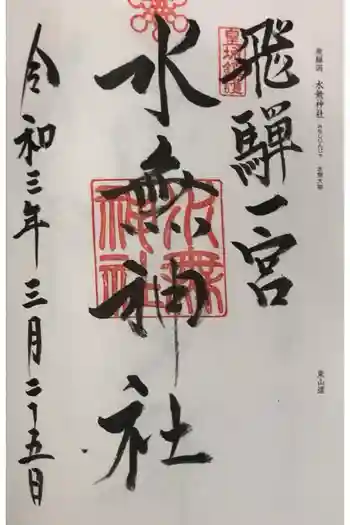 飛騨国 水無神社
東山道
飛騨一宮
皇城鎮護
水無神社
水無神社
令和三年三月二十五日